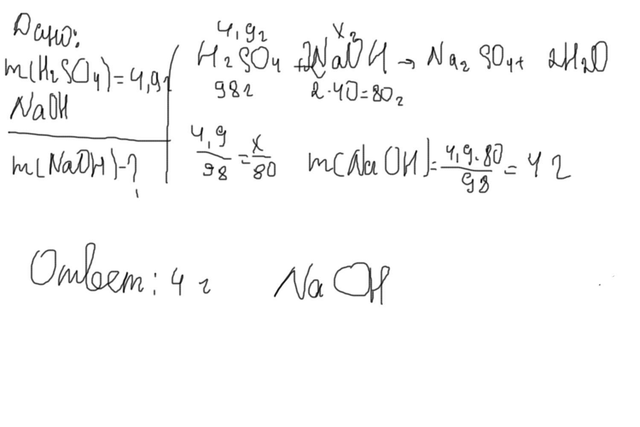 Дано:
m(H₂SO₄)=4,9г
NaOH
m(NaOH)-?
4,9г xг
H₂SO₄ + 2NaOH → Na₂SO₄+ 2H₂O
98г 2·40=80г
4,9/98 = x/80 m(NaOH)= 4,9·80/98 = 4 г
Ответ: 4 г NaOH